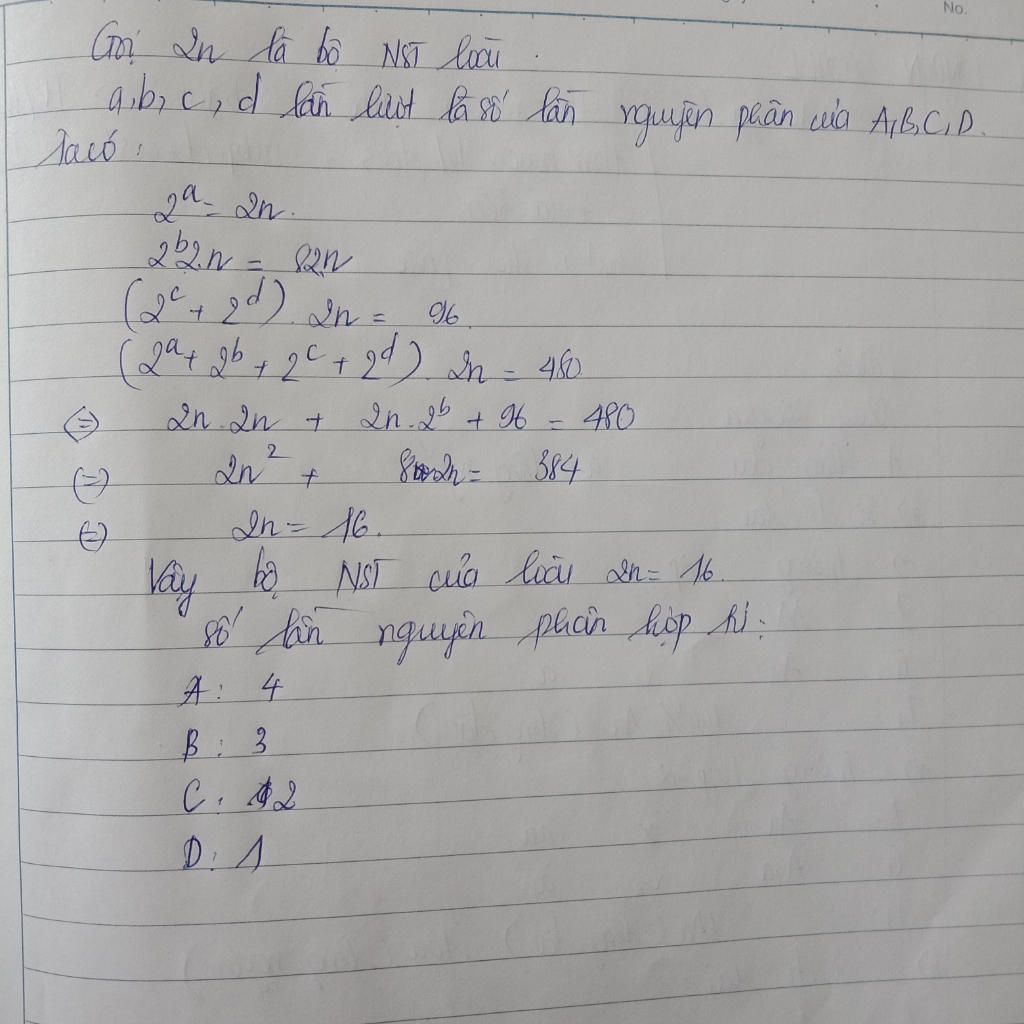 No.
Gọi 2n là bộ NST loài.
a,b,c,d lần lượt là số lần nguyên phân của A,B,C,D.
Ta có:
2^a = 2n.
2^b.2n = 8.2n
(2^c + 2^d).2n = 96.
(2^a + 2^b + 2^c + 2^d).2n = 480
(=) 2n.2n + 2n.2^b + 96 = 480
(=) 2n² + 8.2n = 384
(=) 2n = 16.
Vậy bộ NST của loài 2n = 16.
số lần nguyên phân hợp tử:
A: 4
B: 3
C: 2
D: 1